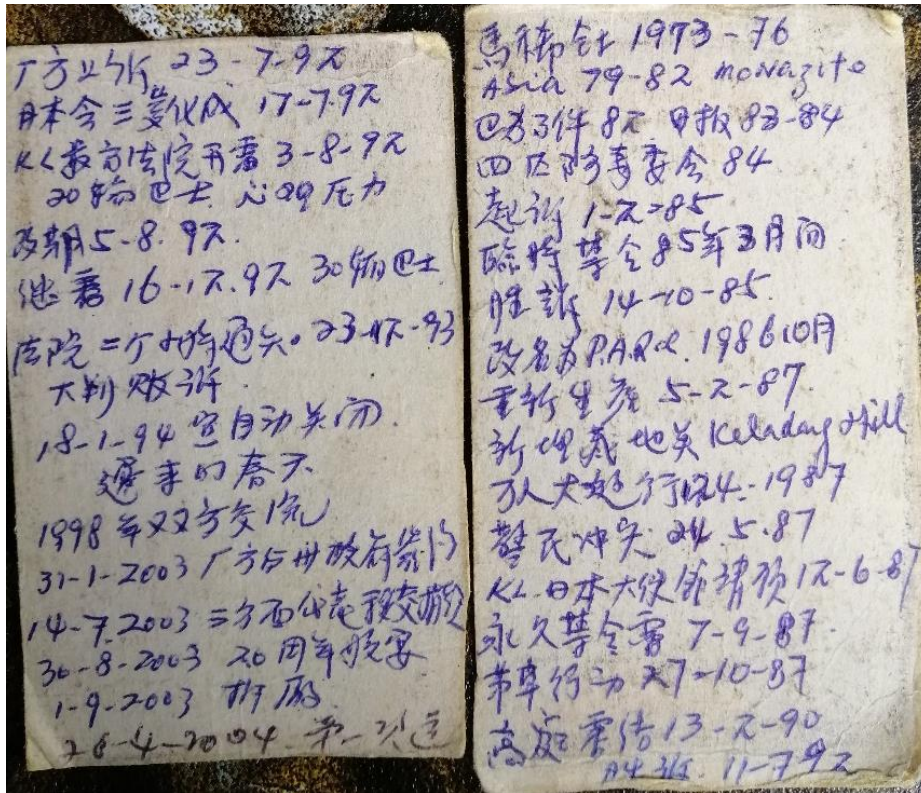 厂方上诉 23-7-92
日本会三菱化成 17-7.92
KL最高法院开审 3-8-92
20辆巴士 心 压力
改期 5-8.92.
继审 16-12.92 30辆巴士
法院二个小时过关。23-12-93
大判败诉
18-1-94 宣自动关闭.
迟来的春天
1998年双方交
31-1-2003 厂方与州政府签约
14-7.2003 三方面代表移交
30-8-2003 20周年晚宴
1-9-2003 拆厂
26-4-2004 第一次
馬 1973-76
Asia 79-82 monazite
巴力事件 82 日报 83-84
四区防毒委会 84
起诉 1-2-85
臨時禁令 85年 月间
胜訴 14-10-85.
改名为 P.A.R.C. 1986 10月
重新生产 5-2-87.
新埋藏地点 Keladang Hill
万人大遊行 4.-1987
警民冲突 24 5.87
KL 日本大使館請愿 12-6-87
永久禁令審 7-9-87.
茅草行动 27-10-87
高庭審结 13-2-90
胜訴. 11-7 92